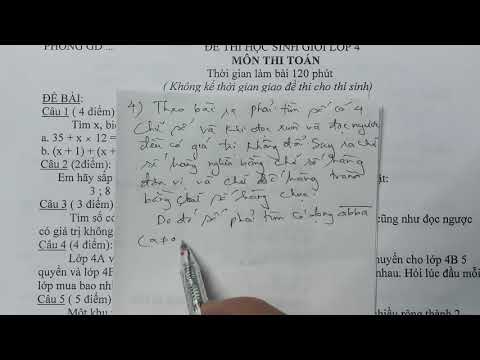 PHÒNG GD ...
ĐỀ THI HỌC SINH GIỎI LỚP 4
MÔN THI TOÁN
Thời gian làm bài 120 phút
( Không kể thời gian giao đề thi cho thí sinh)
ĐỀ BÀI:
Câu 1 ( 4 điểm)
Tìm x, biế
a. 35 + x × 12 =
b. (x + 1) + (x +
Câu 2 (2điểm):
Em hãy sắp
3 ; 8
Câu 3 ( 3 điểm)
Tìm số có
có giá trị không
cũng như đọc ngược
Câu 4 (4 điểm):
Lớp 4A v
chuyển cho lớp 4B 5
quyển và lớp 4B
nhau. Hỏi lúc đầu mỗi
lớp mua bao nhi
Câu 5 ( 5 điểm)
Một khu
chiều rộng thành 2
4) Theo bài ra phải tìm số có 4
chữ số và khi đọc xuôi và đọc ngược
đều có giá trị không đổi suy ra chữ
số hàng nghìn bằng chữ số hàng
đơn vị và chữ số hàng trăm
bằng chữ số hàng chục.
Do đó số phải tìm có dạng abba
(a≠0